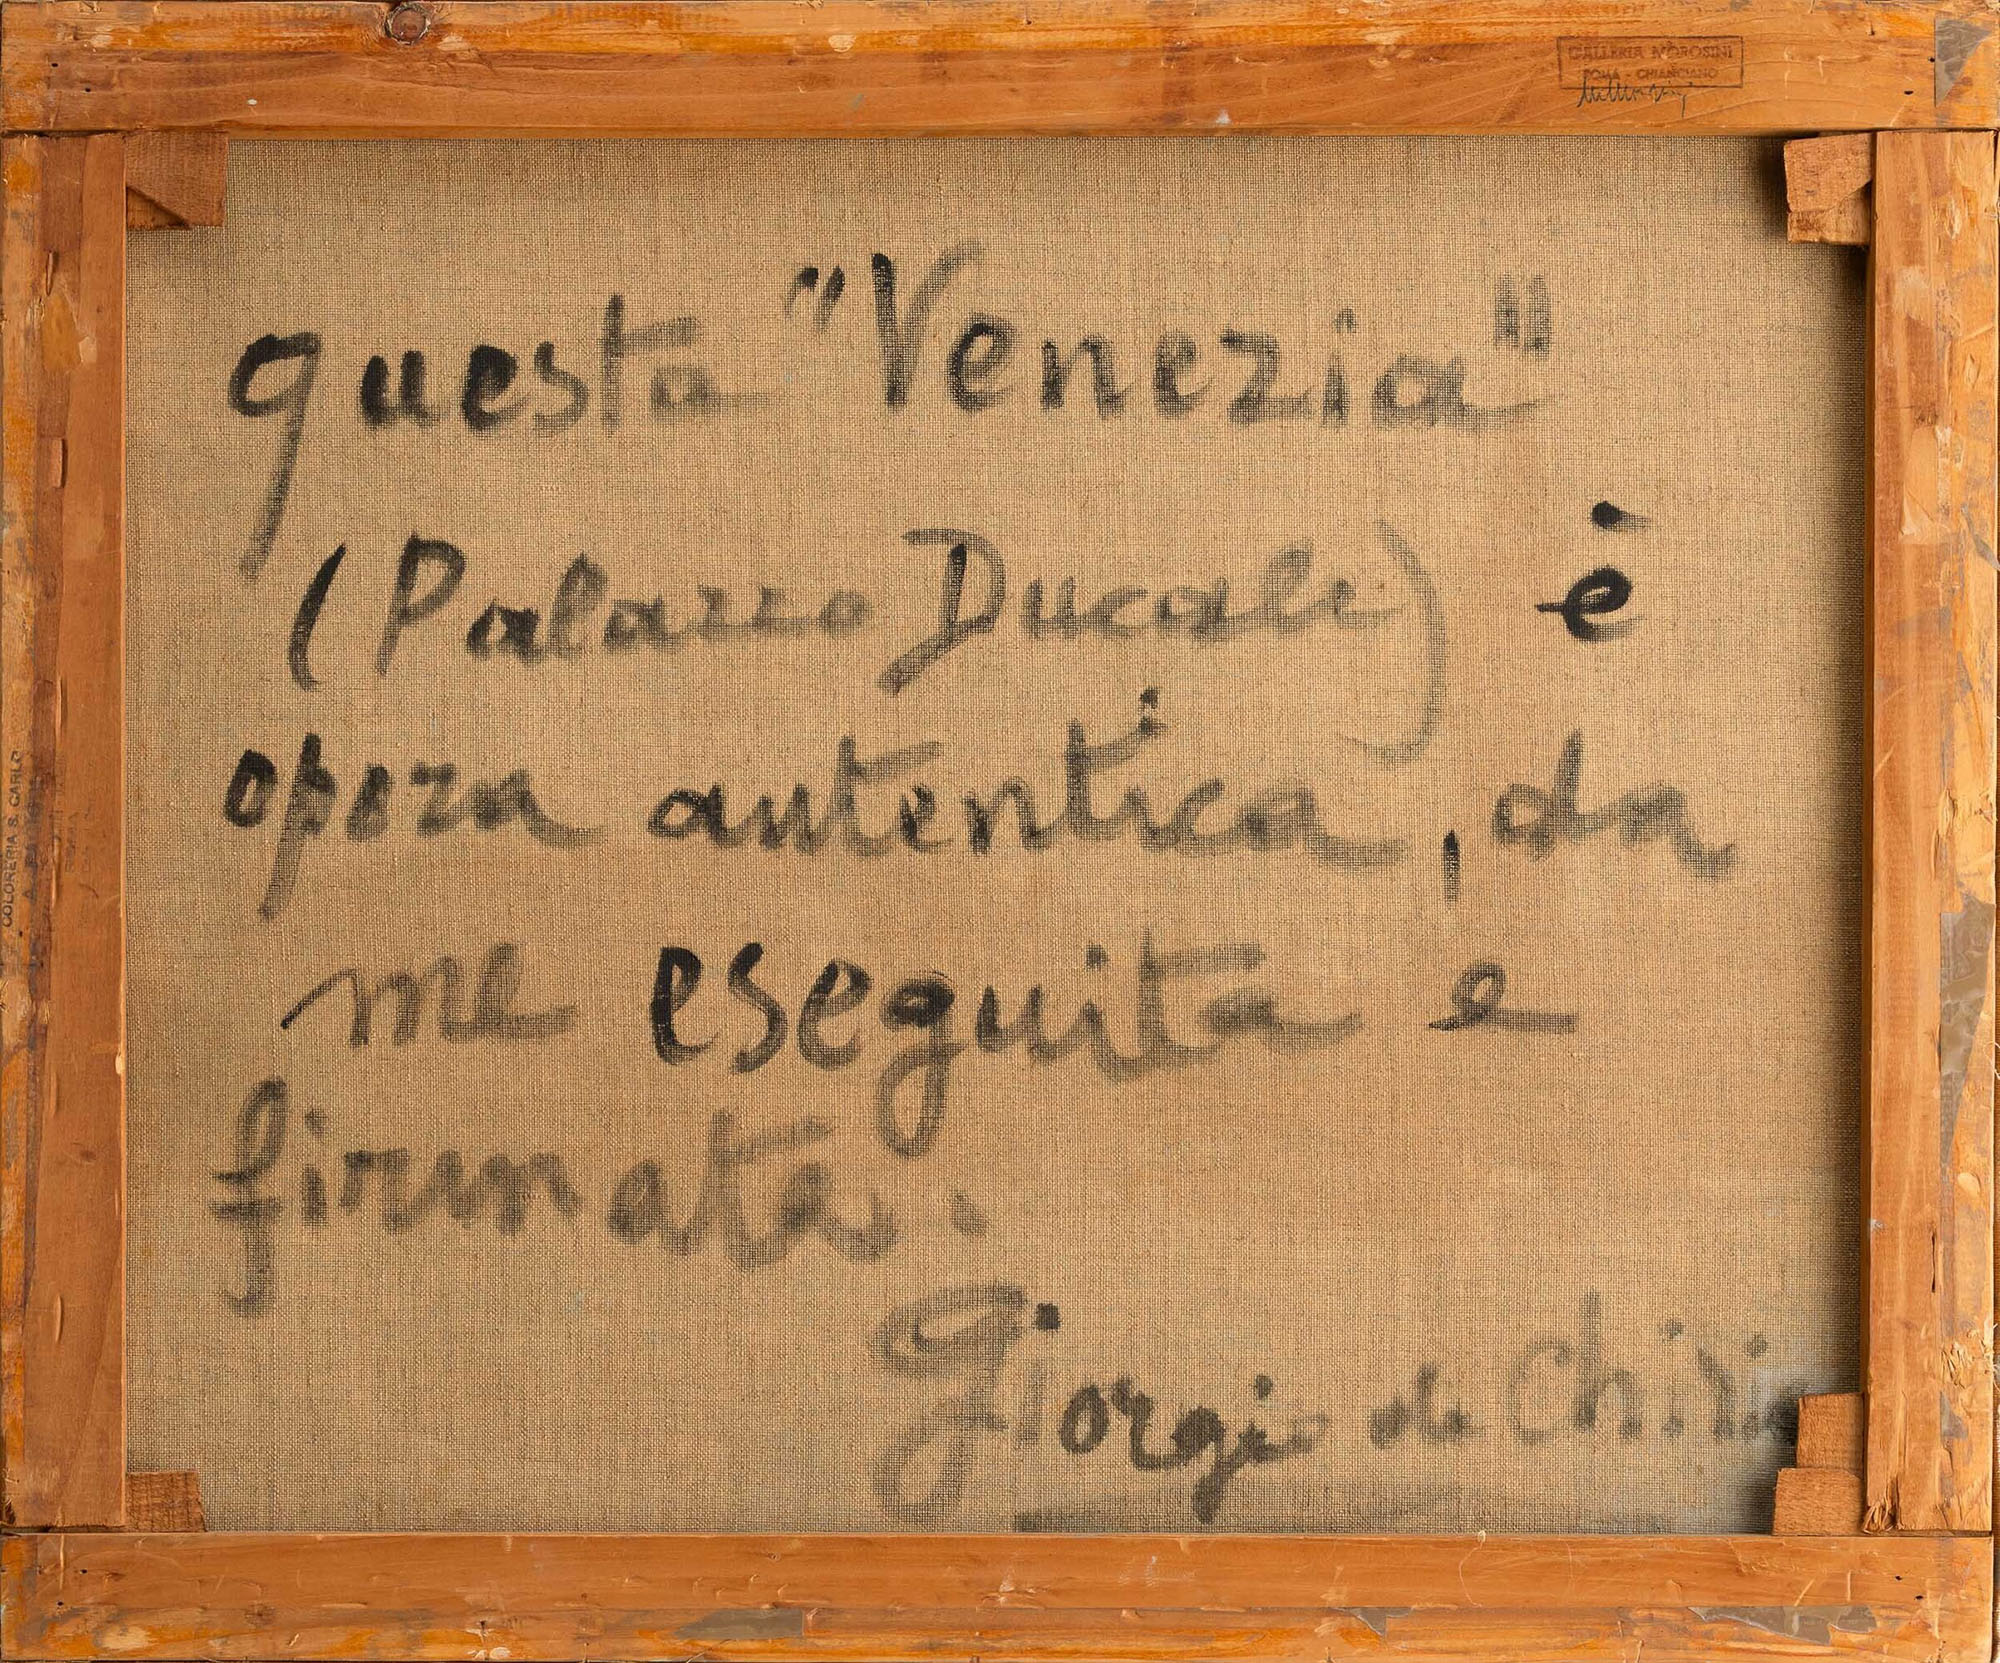 GALLERIA MOROSINI
ROMA - CHIANCIANO
questa "Venezia"
(Palazzo Ducale) è
opera autentica, da
me eseguita e
firmata.
Giorgio de Chirico
COLORERIA S. CARLO